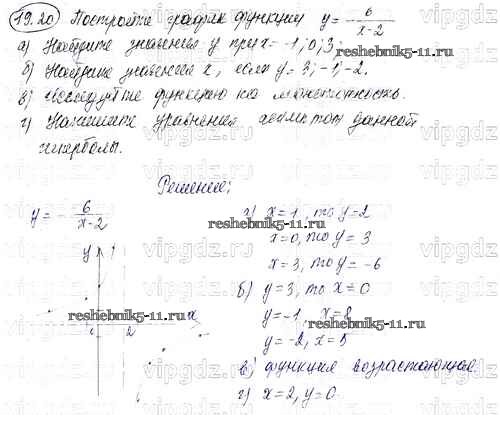 19.20 Постройте график функции y = - 6/(x-2)
а) Найдите значения y при x = -1; 0; 3;
б) Найдите значения x, если y = 3; -1; -2.
в) исследуйте функцию на монотонность.
г) Напишите уравнения асимптот данной
гиперболы.
Решение:
y = - 6/(x-2)
а) x = -1, то y = 2
x=0, то y = 3
x = 3, то y = -6
б) y = 3, то x = 0
y = -1, x = 8
y = -2, x = 5
в) функция возрастающая
г) x = 2, y = 0
y
x
0
2
reshebnik5-11.ru
reshebnik5-11.ru
reshebnik5-11.ru
vipgdz.ru